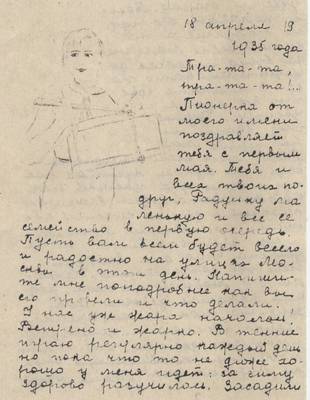 18 апреля 19
1935 года
Тра-та-та,
тра-та-та!...
Пионерка от
моего имени
поздравляет
тебя с первым
мая. Тебя и
всех твоих по-
друг, Радушку ма
ленькую и все ее
семейство в первую очередь.
Пусть вам всем будет весело
и радостно на улицах Мо-
сквы в этот день. Напиши-
те мне поподробнее как вы
его провели и что делали.
У нас уже жара началась,
и жарко. В теннис
играю регулярно каждый день
но пока что то не дюже хо-
рошо у меня идет: за зиму
здорово разучилась. Засадили